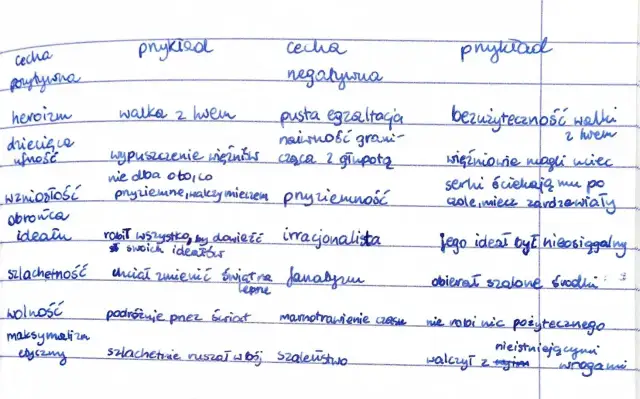 cecha przykład cecha przykład
pozytywna negatywna
heroizm walka z lwem pusta egzaltacja bezużyteczność walki z lwem
dziecięca ufność wypuszczenie więźniów naiwność granicząca z głupotą więźniowie mogli uciec
wzniosłość nie dba o to, co przyziemne, walczy mieczem przyziemność serki ściekają mu po czole, miecz zardzewiały
obrońca ideału robił wszystko, by dowieźć swoich ideałów irracjonalista jego ideał był nieosiągalny
szlachetność chciał zmienić świat na lepsze fanatyzm obierał szalone środki
wolność podróżuje przez świat marnotrawienie czasu nie robi nic pożytecznego
maksymalizm etyczny szlachetnie ruszał w bój szaleństwo walczył z nieistniejącymi wrogami